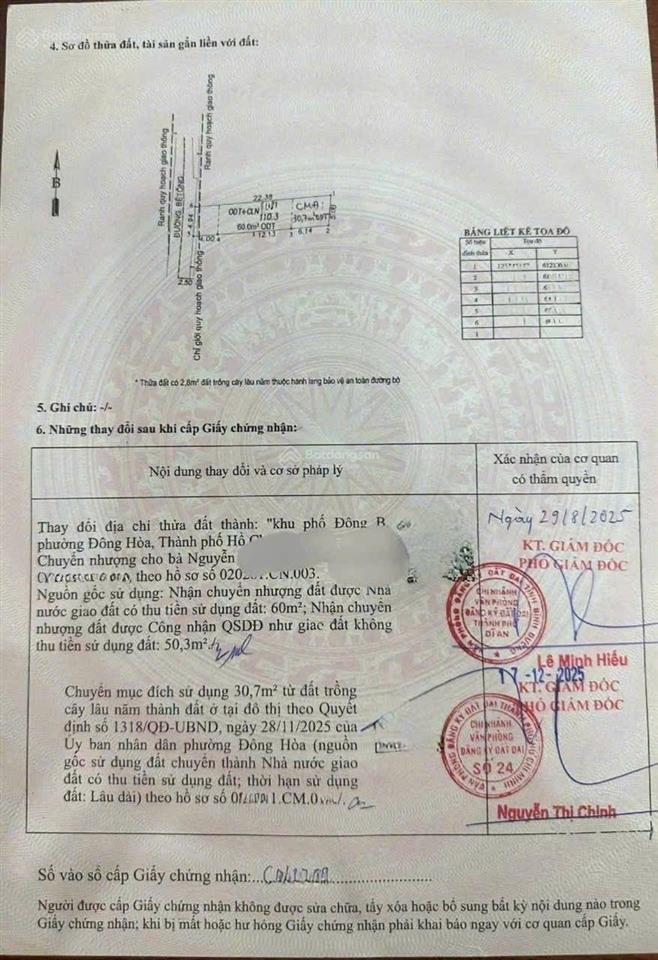 Batdongsan
4. Sơ đồ thửa đất, tài sản gắn liền với đất:
Ranh quy hoạch giao thông
Ranh quy hoạch giao thông
ĐƯỜNG BÊTÔNG
B
22.38
ODT+CLN
110.3
60.0m² ODT
CMĐ
30,7m² ODT
4.94
4.00
12.13
6.14
2.50
Chỉ giới quy hoạch giao thông
BẢNG LIỆT KÊ TỌA ĐỘ
Số hiệu đỉnh thửa
Tọa độ
X Y
1
2
3
4
5
6
1
* Thửa đất có 2,8m² đất trồng cây lâu năm thuộc hành lang bảo vệ an toàn đường bộ
5. Ghi chú: -/-
6. Những thay đổi sau khi cấp Giấy chứng nhận:
Batdongsan
Nội dung thay đổi và cơ sở pháp lý
Xác nhận của cơ quan
có thẩm quyền
Thay đổi địa chỉ thửa đất thành: "khu phố Đông
phường Đông Hòa, Thành phố Hồ
Chuyển nhượng cho bà Nguyễn
theo hồ sơ số
Nguồn gốc sử dụng: Nhận chuyển nhượng đất được Nhà
nước giao đất có thu tiền sử dụng đất: 60m²; Nhận chuyển
nhượng đất được Công nhận QSDĐ như giao đất không
thu tiền sử dụng đất: 50,3m²./.
Ngày 29/8/2025
KT. GIÁM ĐỐC
PHÓ GIÁM ĐỐC
VĂN PHÒNG ĐĂNG KÝ ĐẤT ĐAI TỈNH BÌNH DƯƠNG
CHI NHÁNH
VĂN PHÒNG
ĐĂNG KÝ ĐẤT ĐAI
THÀNH PHỐ
DĨ AN
Lê Minh Hiếu
Chuyển mục đích sử dụng 30,7m² từ đất trồng
cây lâu năm thành đất ở tại đô thị theo Quyết
định số 1318/QĐ-UBND, ngày 28/11/2025 của
Ủy ban nhân dân phường Đông Hòa (nguồn
gốc sử dụng đất chuyển thành Nhà nước giao
đất có thu tiền sử dụng đất; thời hạn sử dụng
đất: Lâu dài) theo hồ sơ số
17-12-2025
KT. GIÁM ĐỐC
PHÓ GIÁM ĐỐC
VĂN PHÒNG ĐĂNG KÝ ĐẤT ĐAI THÀNH PHỐ HỒ CHÍ MINH
CHI NHÁNH
VĂN PHÒNG
ĐĂNG KÝ ĐẤT ĐAI
SỐ 24
Nguyễn Thị Chinh
Số vào sổ cấp Giấy chứng nhận:
Người được cấp Giấy chứng nhận không được sửa chữa, tẩy xóa hoặc bổ sung bất kỳ nội dung nào trong
Giấy chứng nhận; khi bị mất hoặc hư hỏng Giấy chứng nhận phải khai báo ngay với cơ quan cấp Giấy.